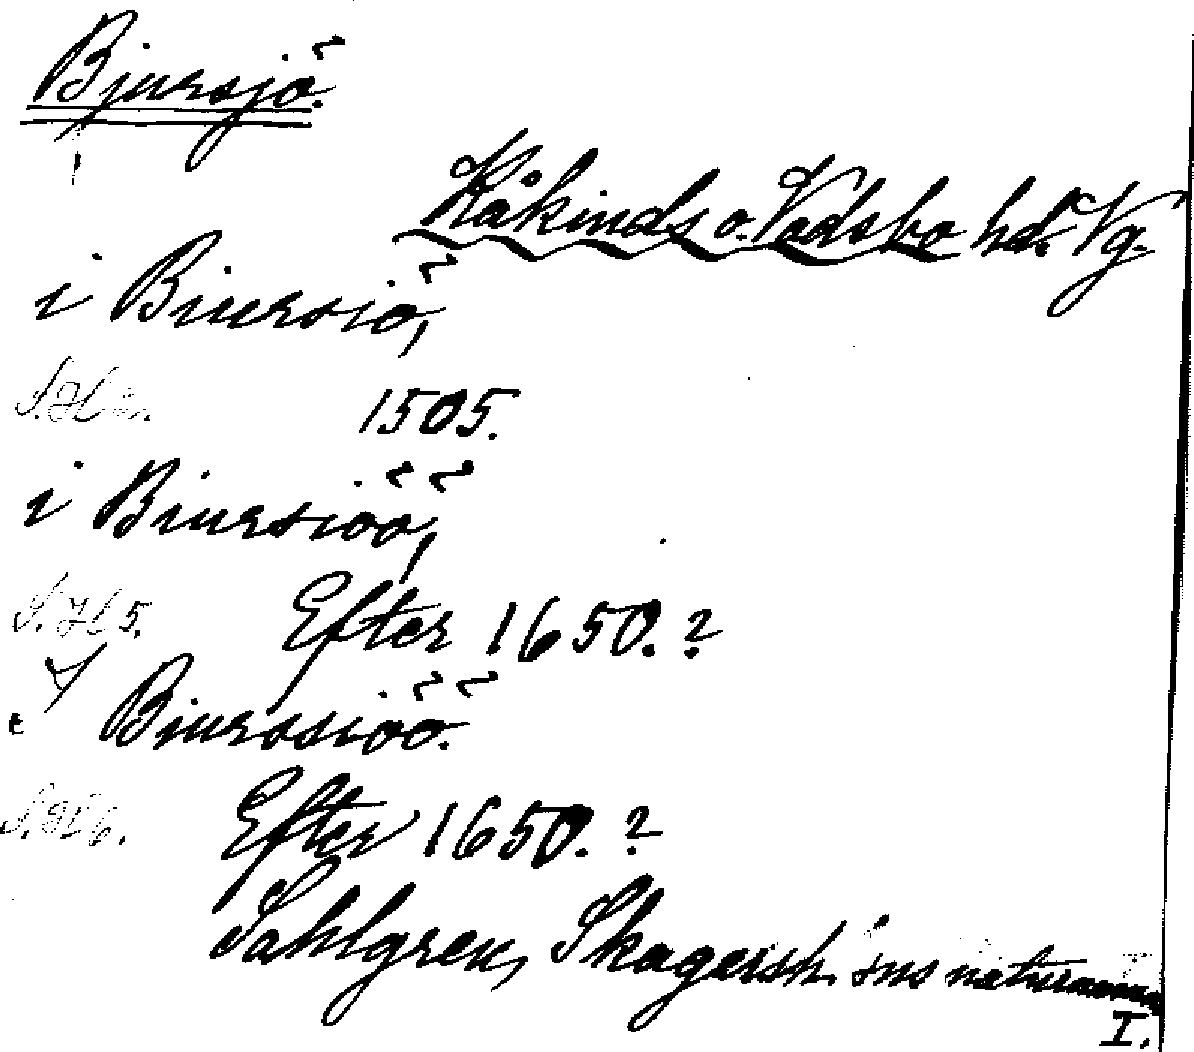 Bjursjö.
Kåkinds o. Vadsbo hd. Vg.
i Biursiö,
S. Hl 2. 1505.
i Biursiöö,
S. Hl 5. Efter 1650.?
Biurssiöö.
S. Hl 6. Efter 1650.?
Sahlgren, Skagersh. sns naturnamn
I.